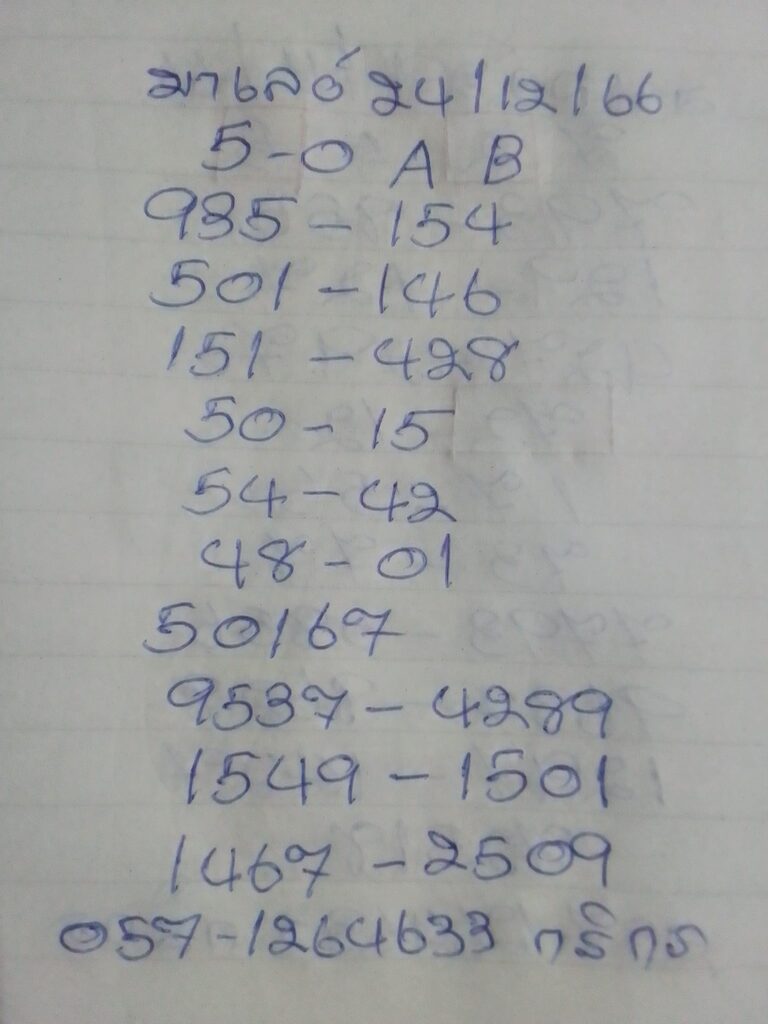 มาเลย์ 24/12/66
5-0 A B
935-154
501-146
151-428
50-15
54-42
48-01
50167
9537-4289
1549-1501
1467-2509
057-1264633 กสิกร